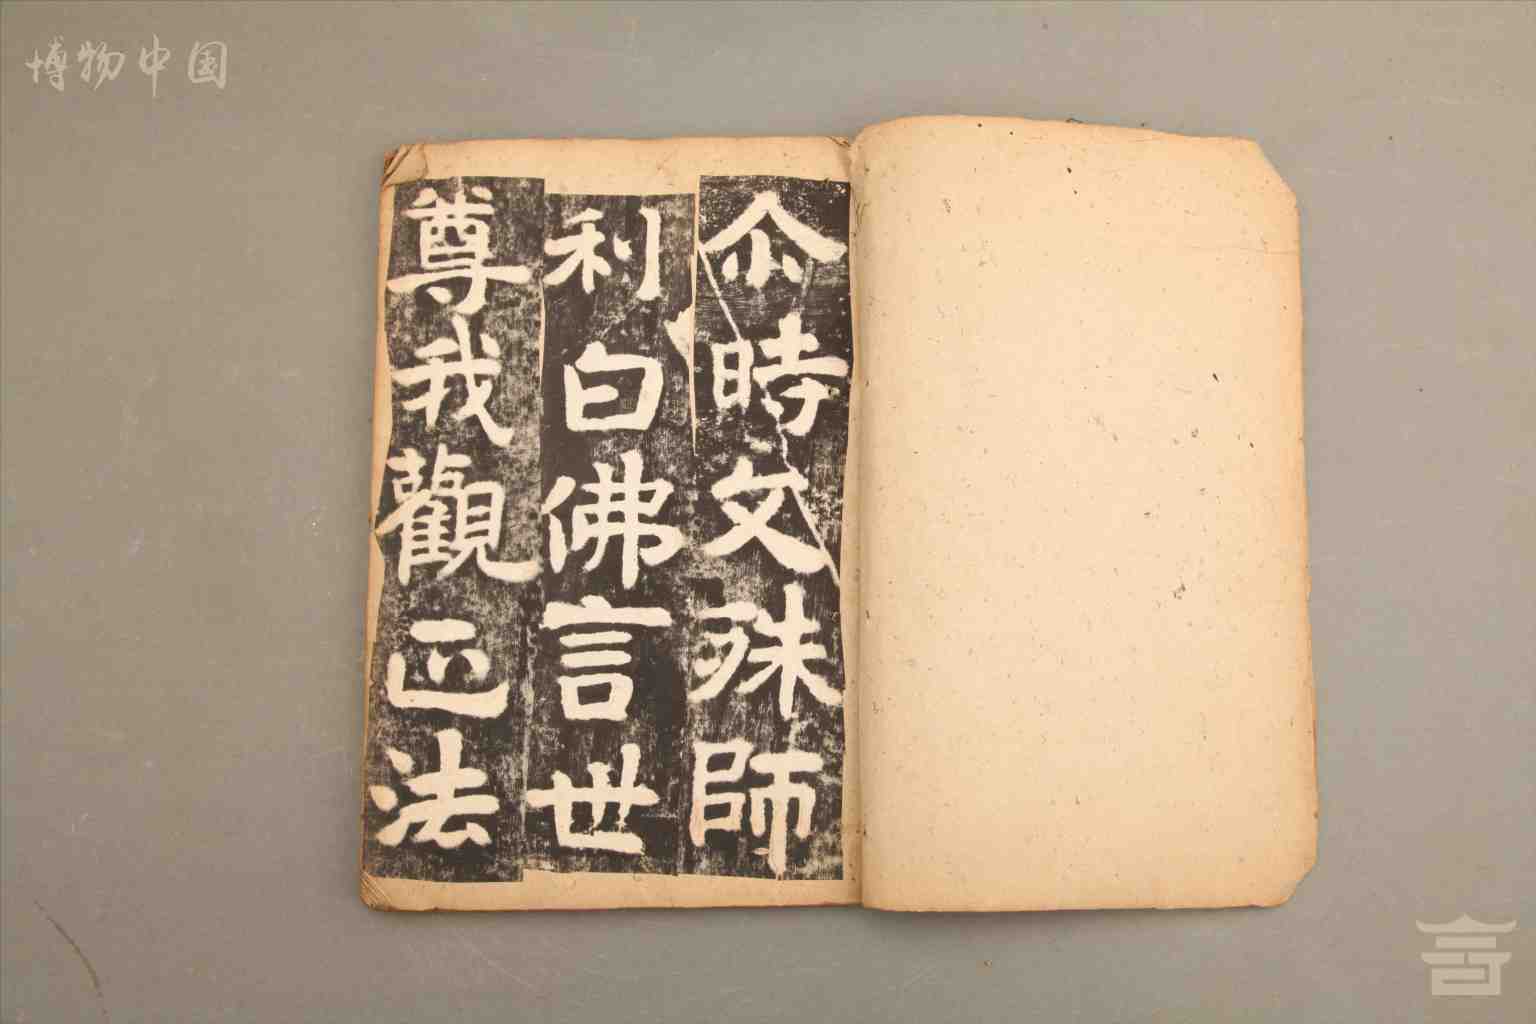 博物中国
尒時文殊師
利白佛言世
尊我觀正法